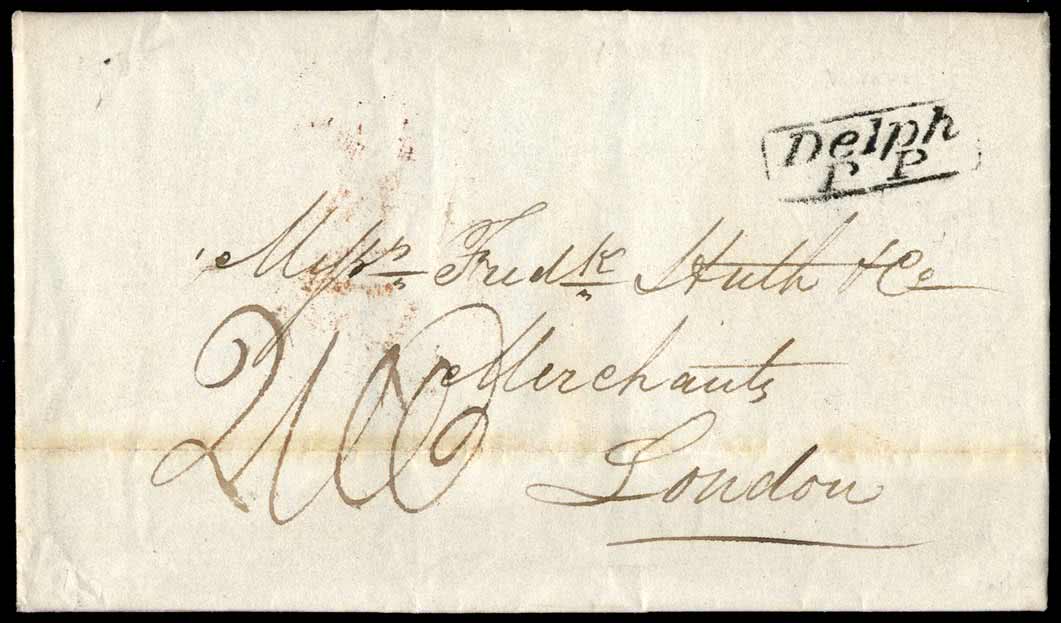 Delph
P P
Messrs Fredk Huth & Co
Merchants
London